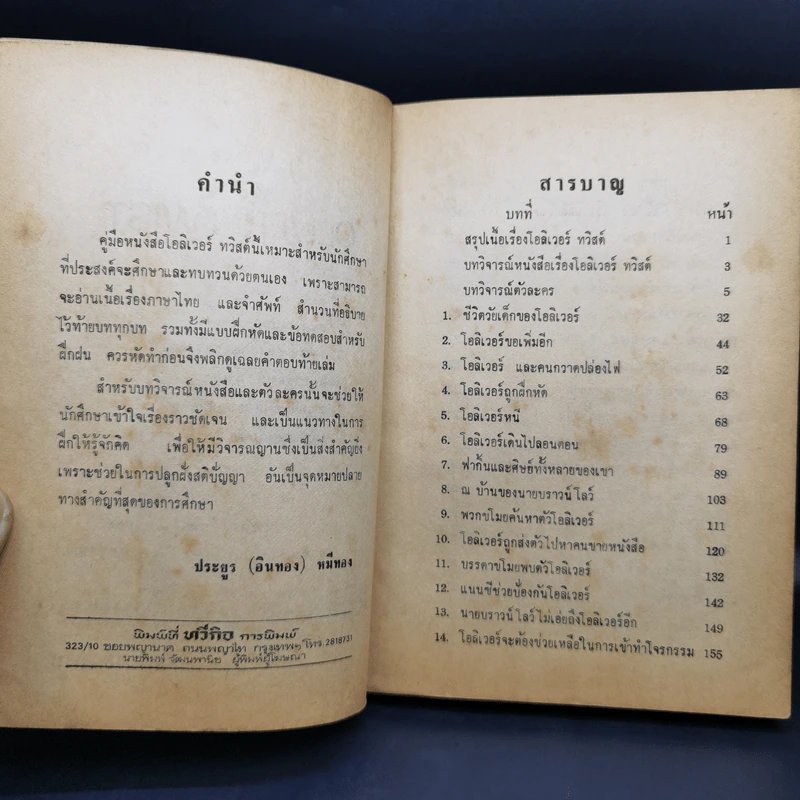 คำนำ
คู่มือหนังสือโอลิเวอร์ ทวิสต์นี้เหมาะสำหรับนักศึกษา
ที่ประสงค์จะศึกษาและทบทวนด้วยตนเอง เพราะสามารถ
จะอ่านเนื้อเรื่องภาษาไทย และจำศัพท์ สำนวนที่อธิบาย
ไว้ท้ายบททุกบท รวมทั้งมีแบบฝึกหัดและข้อทดสอบสำหรับ
ฝึกฝน ควรหัดทำก่อนจึงพลิกดูเฉลยคำตอบท้ายเล่ม
สำหรับบทวิจารณ์หนังสือและตัวละครนั้นจะช่วยให้
นักศึกษาเข้าใจเรื่องราวชัดเจน และเป็นแนวทางในการ
ฝึกให้รู้จักคิด เพื่อให้มีวิจารณญานซึ่งเป็นสิ่งสำคัญยิ่ง
เพราะช่วยในการปลูกฝังสติปัญญา อันเป็นจุดหมายปลาย
ทางสำคัญที่สุดของการศึกษา
ประยูร (อินทอง) หมีทอง
พิมพ์ที่ ทวีกิจ การพิมพ์
323/10 ซอยพญานาค ถนนพญาไท กรุงเทพฯ โทร. 2818731
นายพิมพ์ วัฒนพานิช ผู้พิมพ์ผู้โฆษณา
สารบาญ
บทที่ หน้า
สรุปเนื้อเรื่องโอลิเวอร์ ทวิสต์ 1
บทวิจารณ์หนังสือเรื่องโอลิเวอร์ ทวิสต์ 3
บทวิจารณ์ตัวละคร 5
1. ชีวิตวัยเด็กของโอลิเวอร์ 32
2. โอลิเวอร์ขอเพิ่มอีก 44
3. โอลิเวอร์ และคนกวาดปล่องไฟ 52
4. โอลิเวอร์ถูกฝึกหัด 63
5. โอลิเวอร์หนี 68
6. โอลิเวอร์เดินไปลอนดอน 79
7. ฟากิ้นและศิษย์ทั้งหลายของเขา 89
8. ณ บ้านของนายบราวน์ โลว์ 103
9. พวกขโมยค้นหาตัวโอลิเวอร์ 111
10. โอลิเวอร์ถูกส่งตัวไปหาคนขายหนังสือ 120
11. บรรดาขโมยพบตัวโอลิเวอร์ 132
12. แนนซีช่วยป้องกันโอลิเวอร์ 142
13. นายบราวน์ โลว์ ไม่เอ่ยถึงโอลิเวอร์อีก 149
14. โอลิเวอร์จะต้องช่วยเหลือในการเข้าทำโจรกรรม 155